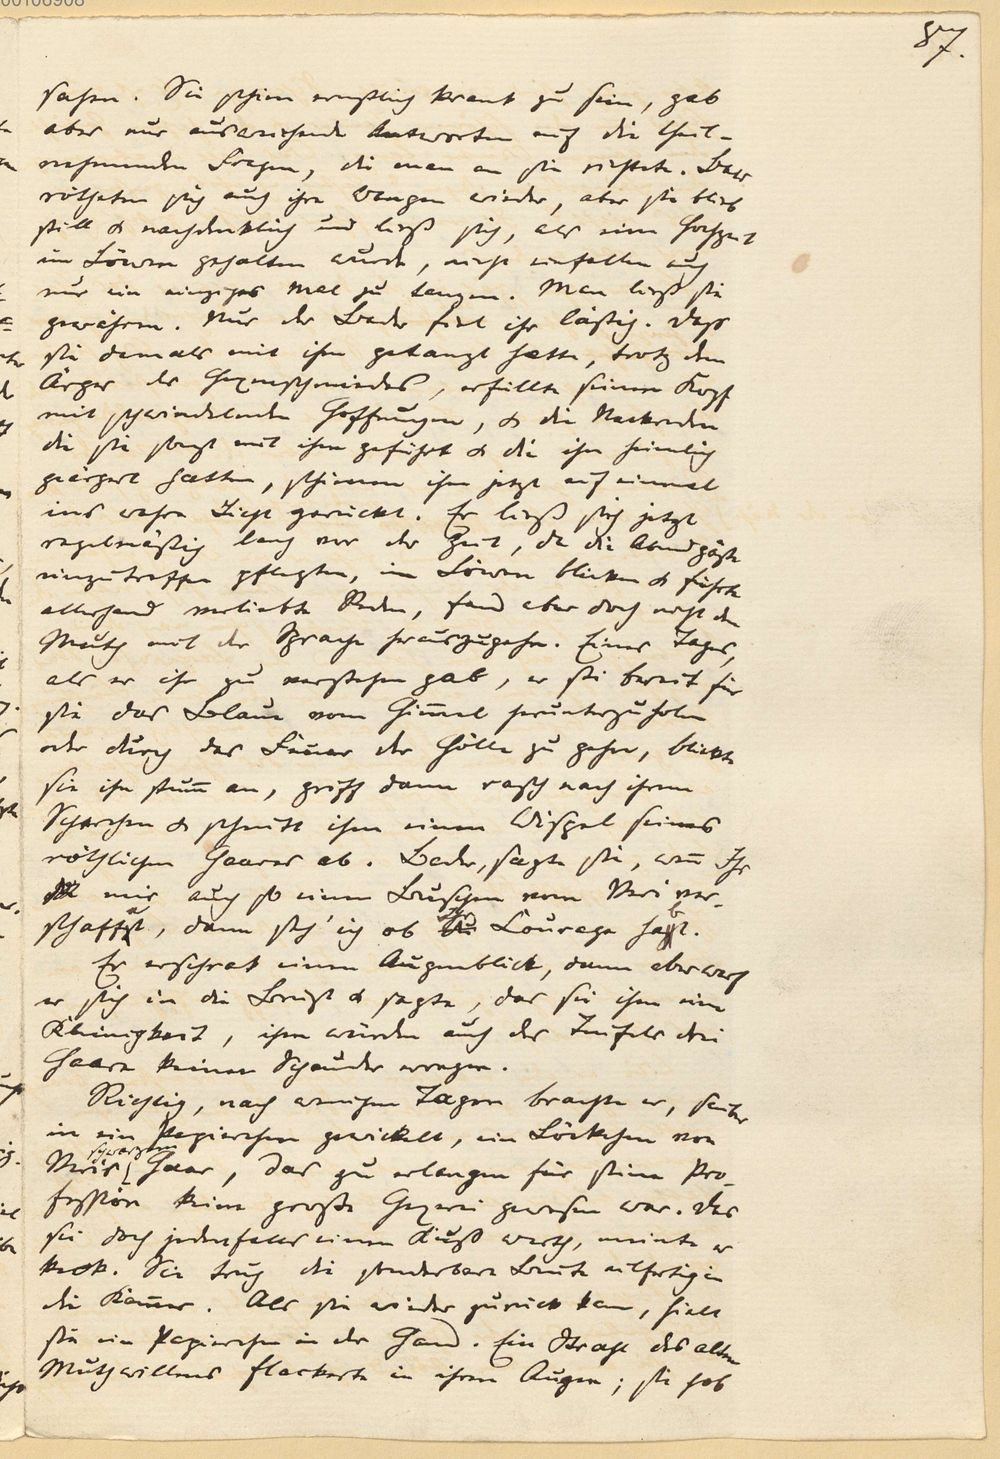 00106908
87.
sahen. Sie schien ernstlich krank zu sein, gab
aber nur ausweichende Antworten auf die theil-
nehmenden Fragen, die man an sie richtete. Bald
rötheten sich auch ihre Wangen wieder, aber sie blieb
still & nachdenklich und ließ sich, als eine Hochzeit
im Löwen gehalten wurde, nicht einfallen auch
nur ein einziges Mal zu tanzen. Man ließ sie
gewähren. Nur der Bader fiel ihr lästig. Dass
sie damals mit ihm getanzt hatte, trotz dem
Ärger des Hexenschmiedes, erfüllte seinen Kopf
mit schwindelnden Hoffnungen, & die Neckreden
die sie sonst mit ihm geführt & die ihn heimlich
geärgert hatten, schienen ihm jetzt auf einmal
ins wahre Licht gerückt. Er ließ sich jetzt
regelmäßig lang vor der Zeit, da die Abendgäste
einzutreffen pflegten, im Löwen blicken & führte
allerhand verliebte Reden, fand aber doch nicht den
Muth mit der Sprache herauszugehn. Eines Tages,
als er ihr zu verstehen gab, er sei bereit für
sie das Blaue vom Him̅el herunterzuholen
oder durch das Feuer der Hölle zu gehen, blickte
sie ihn stum̅ an, griff dann rasch nach ihrem
Scherchen & schnitt ihm einen Wispel seines
röthlichen Haares ab. Bader, sagte sie, wen̅ Ihr
mir auch so einen Buschen vom Veri ver-
schafft, dann seh' ich ob Ihr Courage habt.
Er erschrak einen Augenblick, dann aber warf
er sich in die Brust & sagte, das sei ihm eine
Kleinigkeit, ihm würden auch des Teufels drei
Haare keinen Schauder erregen.
Richtig, nach wenigen Tagen brachte er, sauber
in ein Papierchen gewickelt, ein Löckchen von
Veris schwarzem Haar, das zu erlangen für seine Pro-
fession keine große Hexerei gewesen war. Das
sei doch jedenfalls einen Kuß werth, meinte er
keck. Sie trug die sonderbare Beute eilfertig in
die Kam̅er. Als sie wieder zurück kam, hielt
sie ein Papierchen in der Hand. Ein Strahl des alten
Muthwillens flackerte in ihren Augen; sie hob